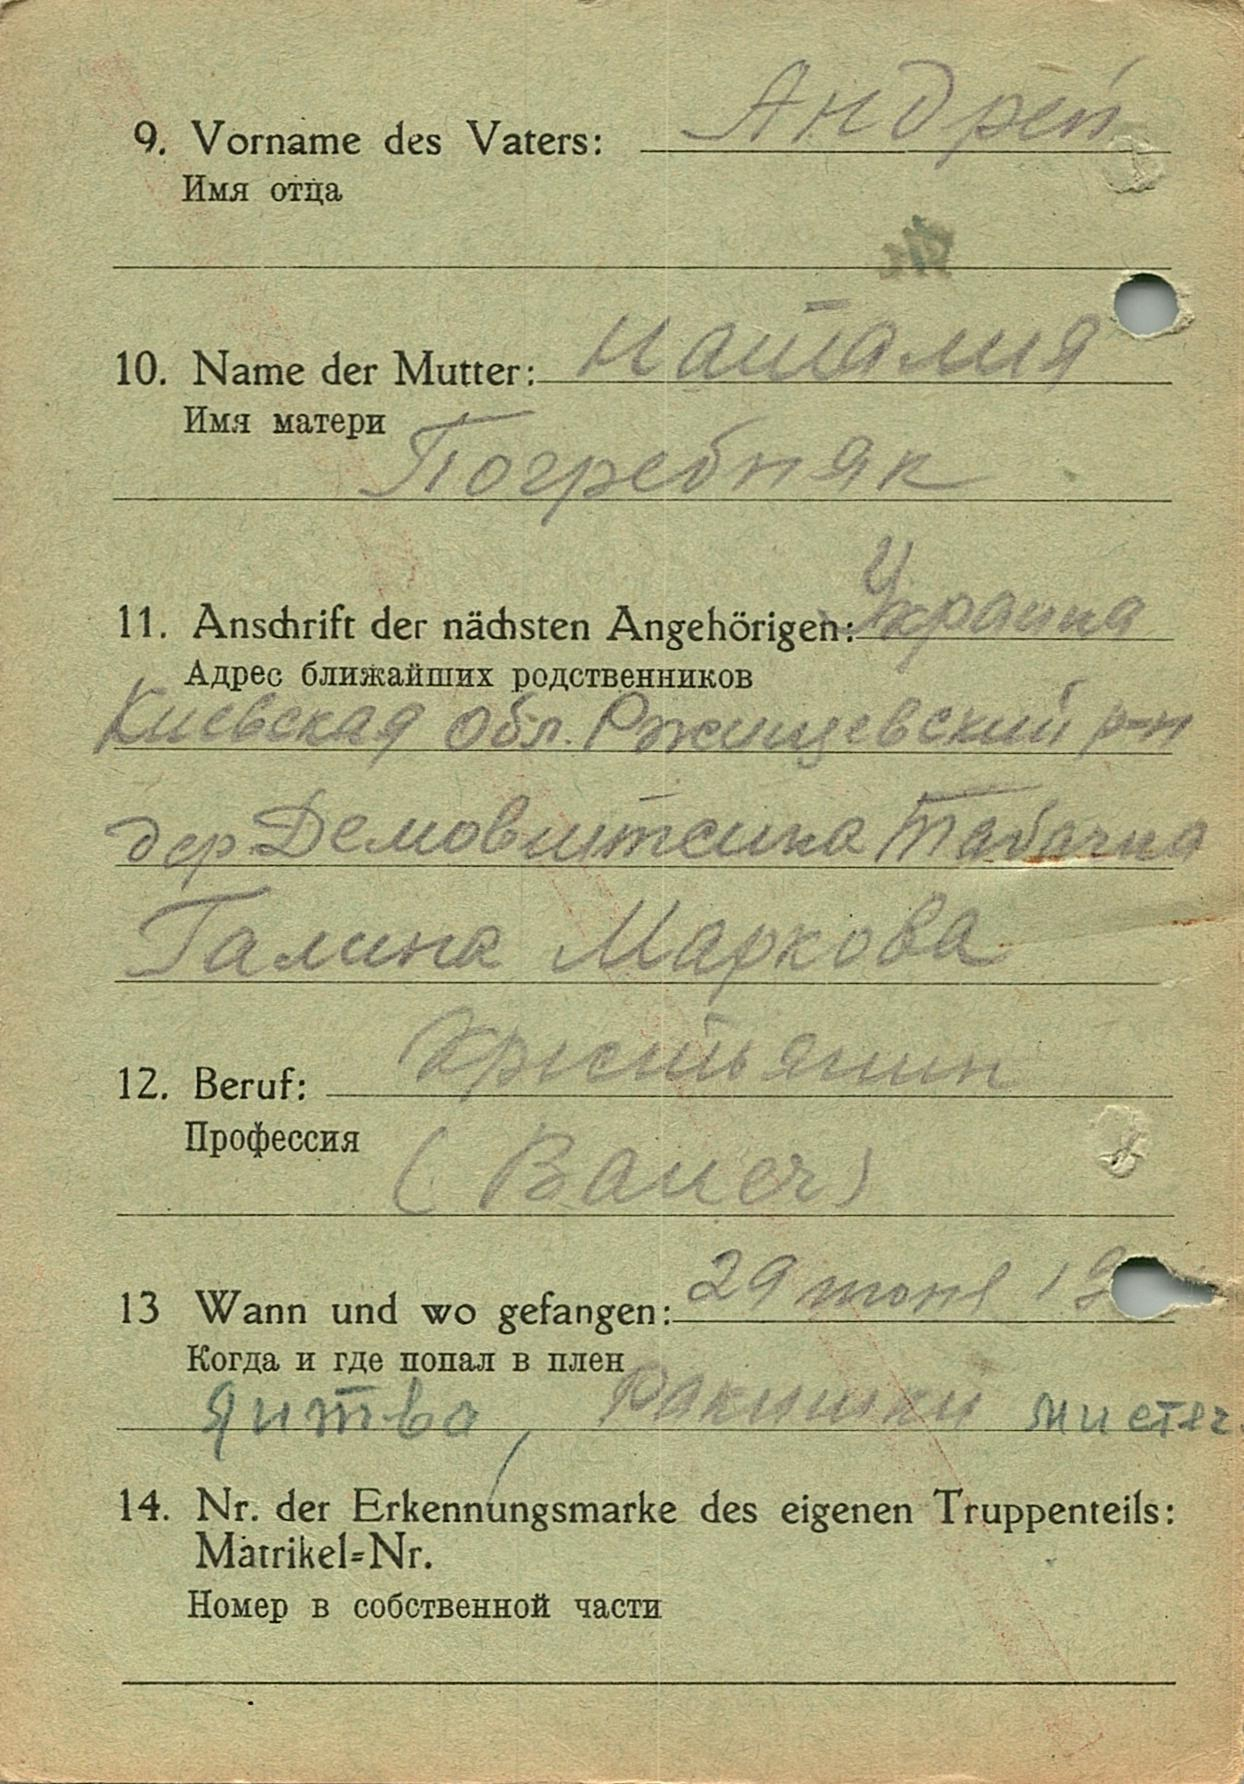 9. Vorname des Vaters: Андрей
Имя отца
10. Name der Mutter: Наталия
Имя матери
Погребняк
11. Anschrift der nächsten Angehörigen: Украина
Адрес ближайших родственников
Киевская обл. Ржищевский р-н
дер Демовштеина Табачна
Галина Маркова
12. Beruf: Христьянин
Профессия
(Bauer)
13 Wann und wo gefangen: 29 июня 19
Когда и где попал в плен
Литва, Ракишки мистеч.
14. Nr. der Erkennungsmarke des eigenen Truppenteils:
Matrikel=Nr.
Номер в собственной части